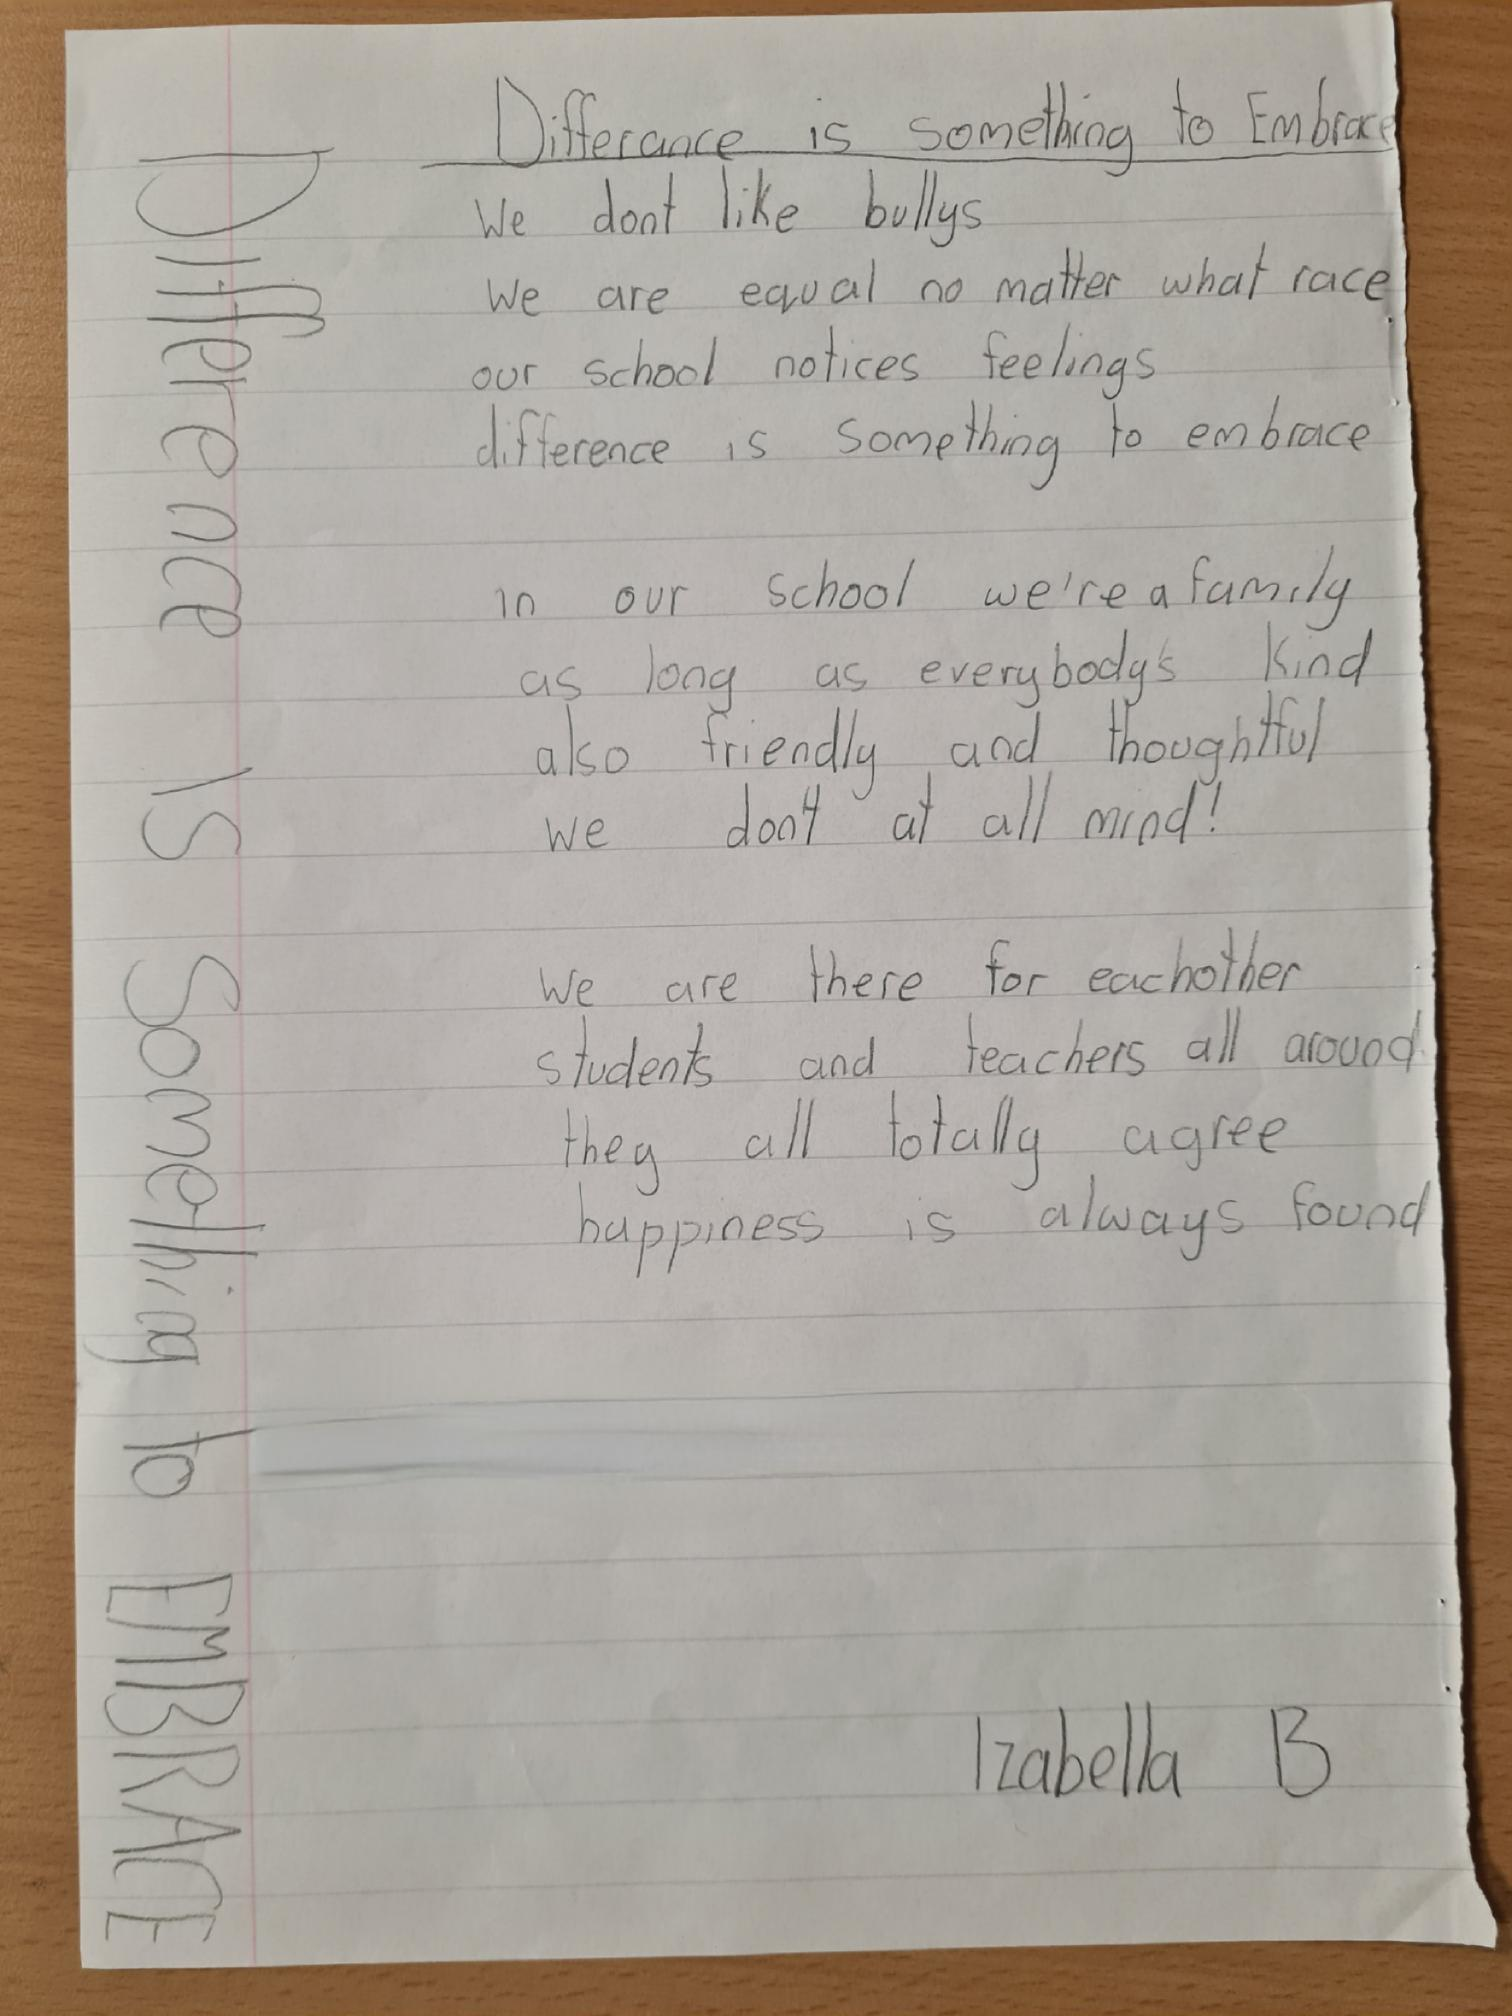 Differance is something to Embrace
We dont like bullys
We are equal no matter what race
our school notices feelings
difference is something to embrace
in our school we're a family
as long as everybody's kind
also friendly and thoughtful
we don't at all mind!
We are there for eachother
students and teachers all around
they all totally agree
happiness is always found
Izabella B
Difference is Something to EMBRACE